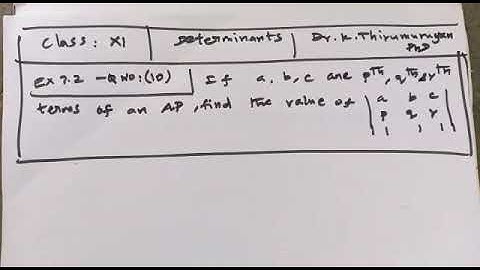 Class: XI Determinants Dr. K. Thirumurugan
PhD
Ex 7.2 - Q NO: (10) If a, b, c are pth, qth & rth
terms of an AP, find the value of | a b c |
| p q r |
| 1 1 1 |